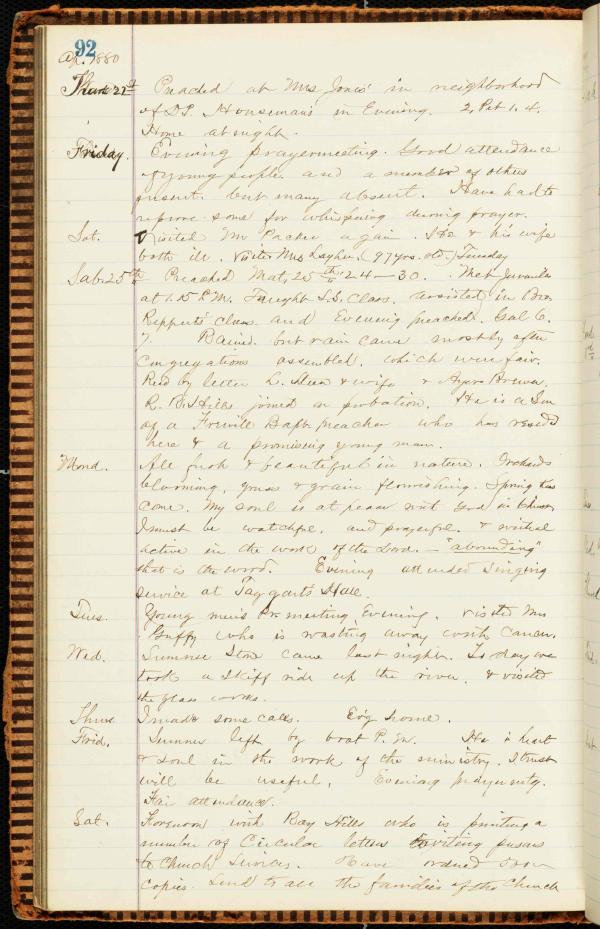 92
Ap. 1880
Thurs 22nd Preached at Mrs Jones' in neighborhood
of D.P. Houseman's in Evening. 2, Pet 1. 4.
Home at night.
Friday. Evening prayermeeting. Good attendance
of young people and a number of others
present. but many absent. Have had to
reprove some for whispering during prayer.
Sat. Visited Mr Packer again. He & his wife
both ill. Visited Mrs (97 yrs. old) Tuesday
Sab. 25th Preached Mat, 25th 24–30. Met Juvenile
at 1.15 P.M. Taught S.S. Class. assisted in Bro.
Rippert's Class. and Evening preached. Gal 6.
7. Rained. but rain came mostly after
congregations assembled. which were fair.
Recd by letter L. & wife & Brown.
R. B. Hills joined on probation. He is a Son
of a Freewill Bapt. preacher who has resided
here & a promising young man.
Mond. All fresh & beautiful in nature. Orchards
blooming, grass & grain flourishing. Spring has
come. My soul is at peace with God in Christ.
I must be watchful, and prayerful. &
active in the work of the Lord. – "abounding"
that is the word. Evening attended Singing
service at Taggarts Hall.
Tues. Young men's Pr. meeting Evening. Visited Mrs
Guffy who is wasting away with Cancer.
Wed. Sumner Stone came last night. To day we
took a Skiff ride up the river, & visited
the glass works.
Thurs I made some calls. Ev'g home.
Frid. Sumner left by boat P.M. He is heart
& soul in the work of the ministry. I trust
will be useful. Evening prayermtg.
Fair attendance.
Sat. Forenoon with Ray Hills who is printing a
number of Circular letters inviting persons
to Church Services. Have ordered 500
copies. Send to all the families of the Church